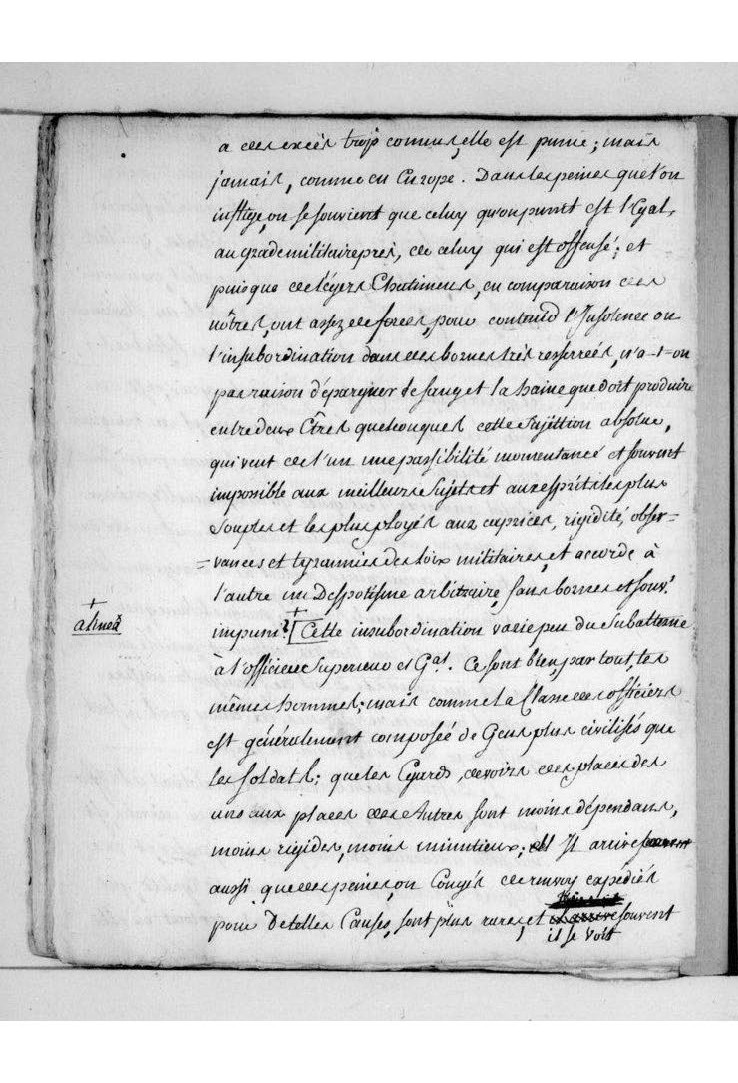 a des excès trop connus, elle est punie ; mais
jamais, comme en Europe. Dans les peines que l'on
inflige, on se souvient que celuy qu'on punit est l'Egal,
au grade militaire près, de celuy qui est offensé ; et
puisque de légers Chatimens, en comparaison des
nôtres, ont assez de forces, pour contenir l'Insolence ou
l'insubordination dans des bornes très resserrées, n'a-t-on
pas raison d'épargner le sang et la haine que doit produire
entre deux Êtres quelconques cette Sujettion absolue,
qui veut de l'un une passibilité momentanée et souvent
impossible aux meilleurs Sujets et aux esprits les plus
Souples et les plus ployés aux caprices, rigidité, obser=
=vances et tyrannies des loix militaires, et accorde à
l'autre un Despotisme arbitraire, sans bornes et souv.t
+
alinéa
impuni ? + [Cette insubordination varie peu du Subalterne
à l'officier Superieur et G.al. Ce sont bien, par tout, les
mêmes hommes ; mais comme la Classe des officiers
est généralement composée de Gens plus civilisés que
les soldats ; que les Egards, devoirs des places des
uns aux places des Autres sont moins dépendans,
moins rigides, moins minutieux ; Il arrive souvent
aussi que des peines, ou Congés de renvoy expédiés
pour De telles Causes, sont plus rares, et souvent
il se voit